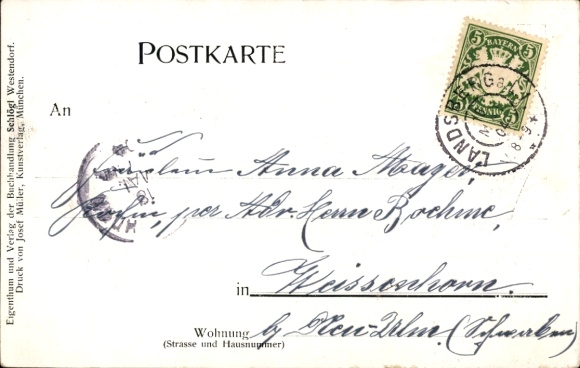 POSTKARTE
5 BAYERN 5
PFENNIG
LANDSBERG a/L
An
Fräulein Anna Mayer,
per Adr. Herrn Boehme,
in Weissenhorn.
Wohnung b/ Neu-Ulm. (Schwaben)
(Strasse und Hausnummer)
Eigenthum und Verlag der Buchhandlung Schlögl Westendorf.
Druck von Josef Müller, Kunstverlag, München.